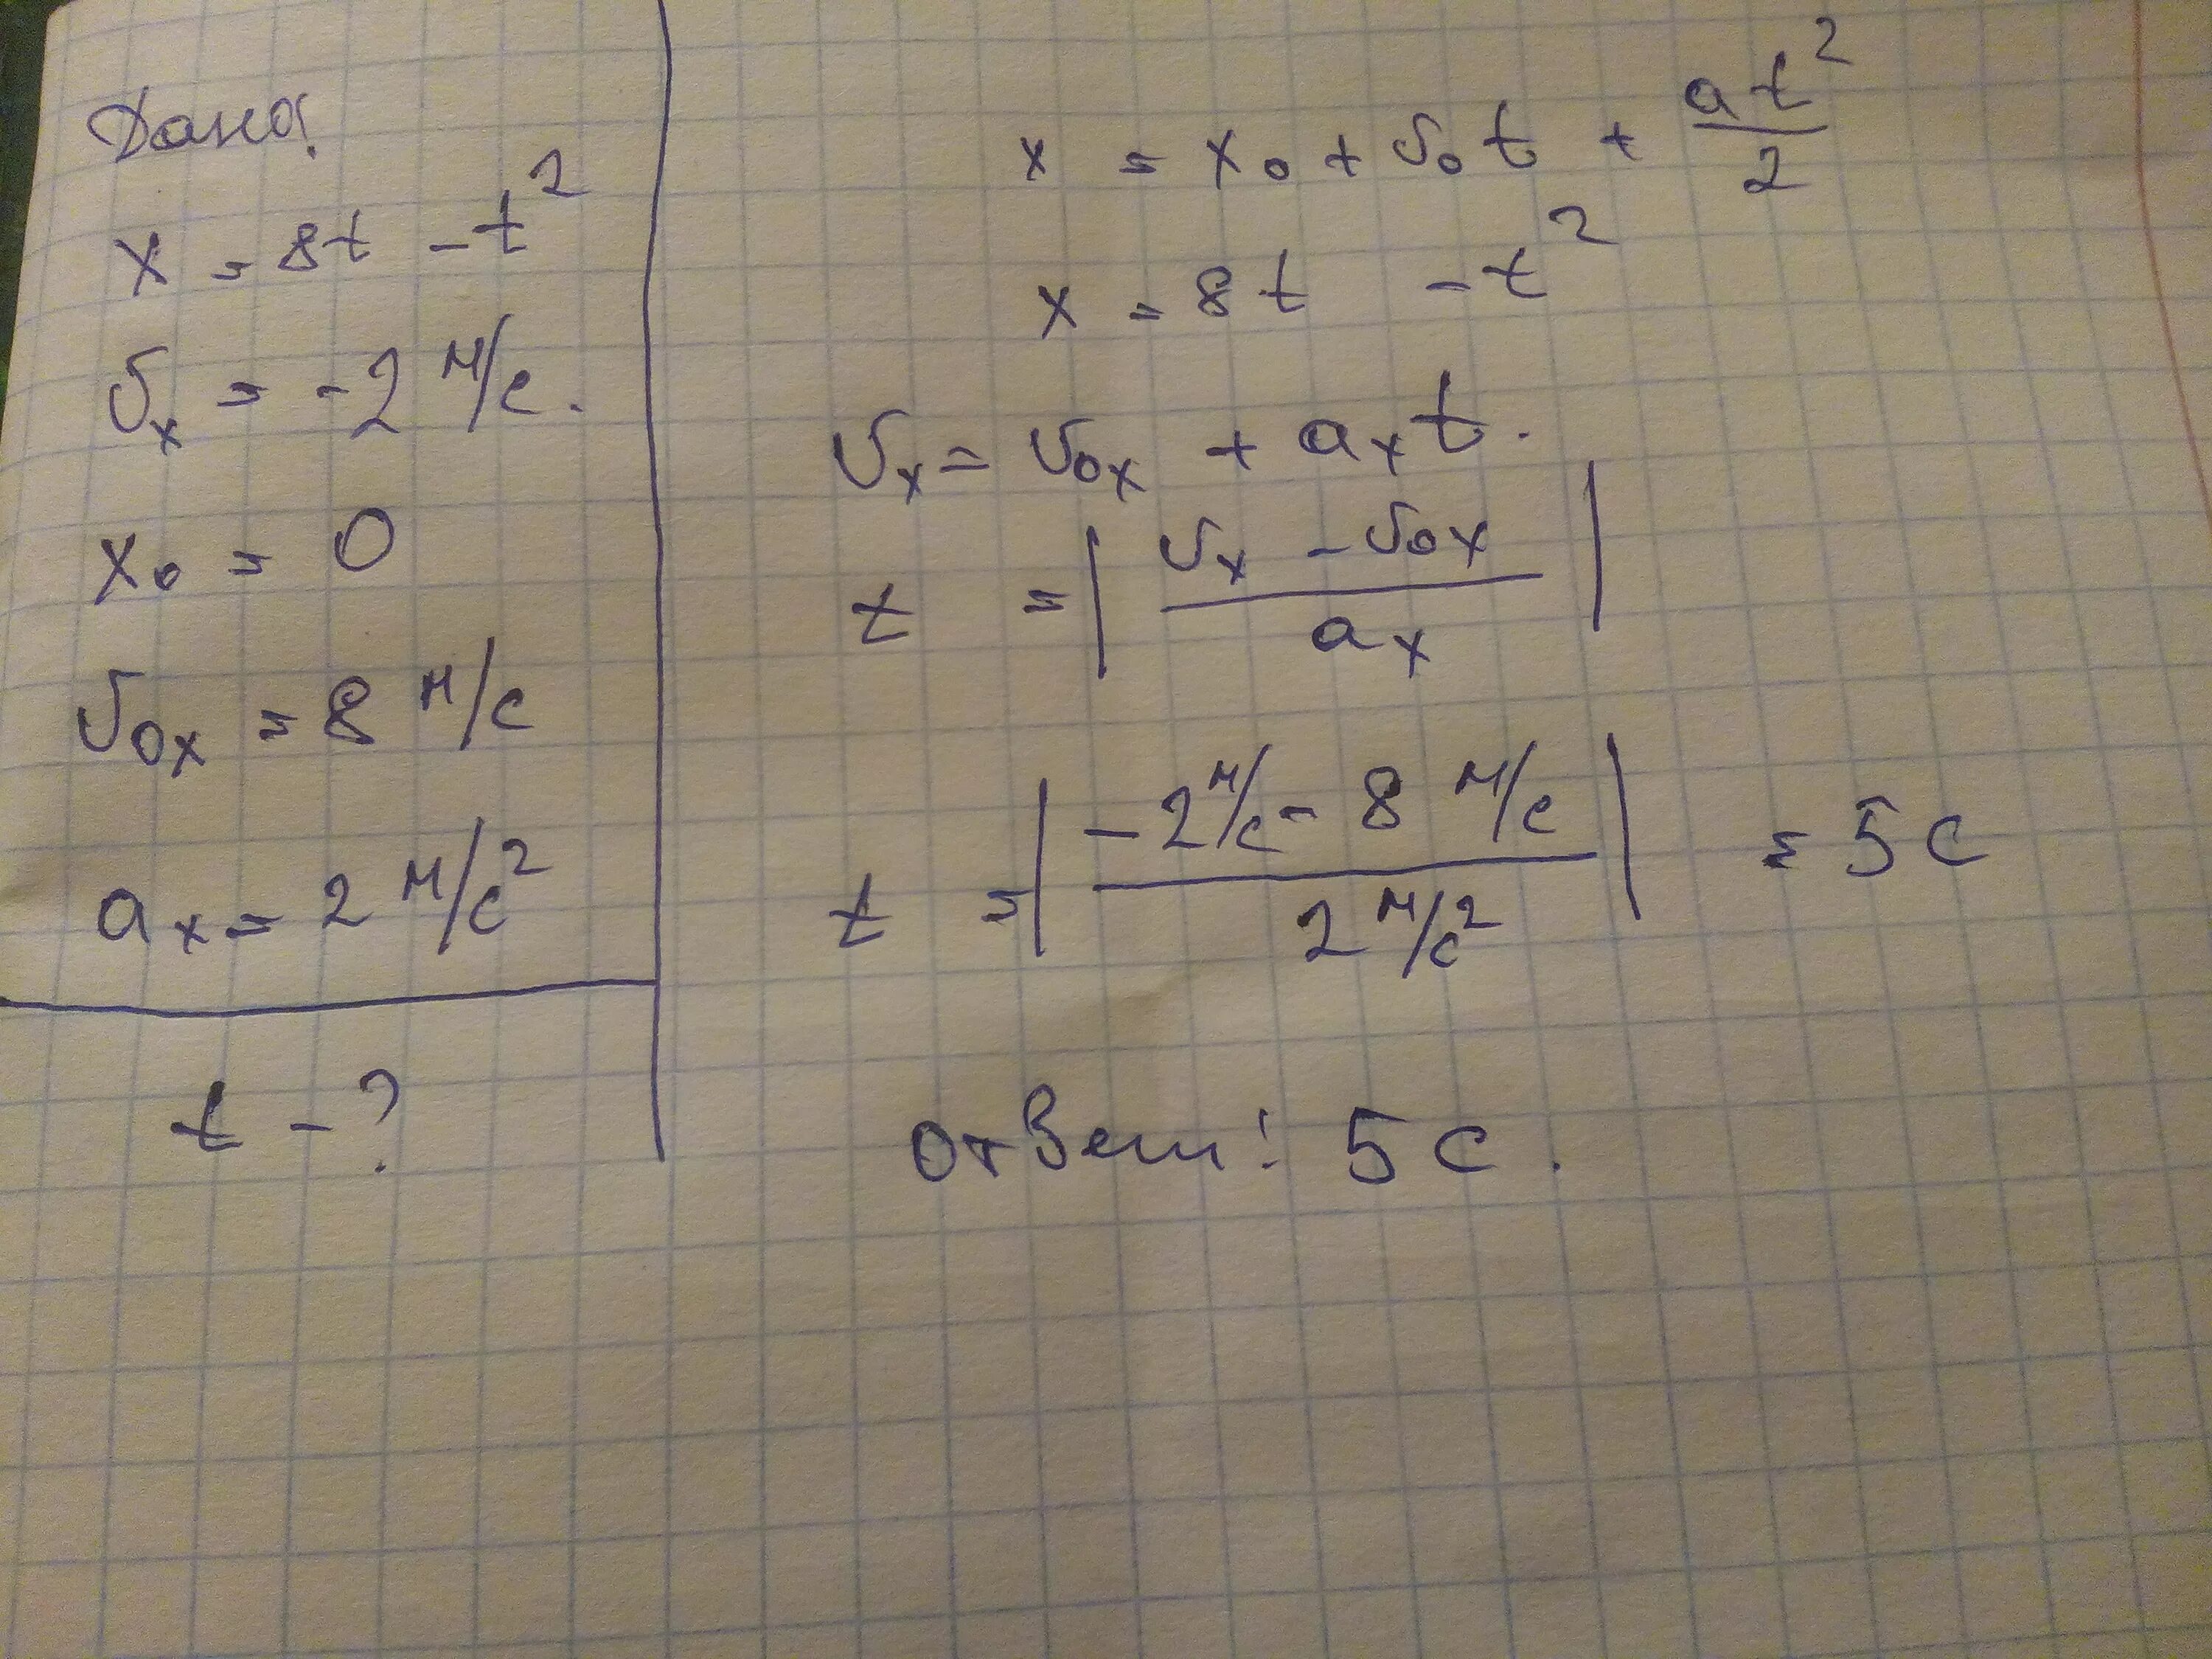 Дано:
x = 8t - t²
υₓ = -2 м/с.
x₀ = 0
υ₀ₓ = 8 м/с
aₓ = 2 м/с²
t - ?
x = x₀ + υ₀t + at²/2
x = 8t - t²
υₓ = υ₀ₓ + aₓt.
t = | (υₓ - υ₀ₓ) / aₓ |
t = | (-2 м/с - 8 м/с) / 2 м/с² | = 5 с
Ответ: 5 с.